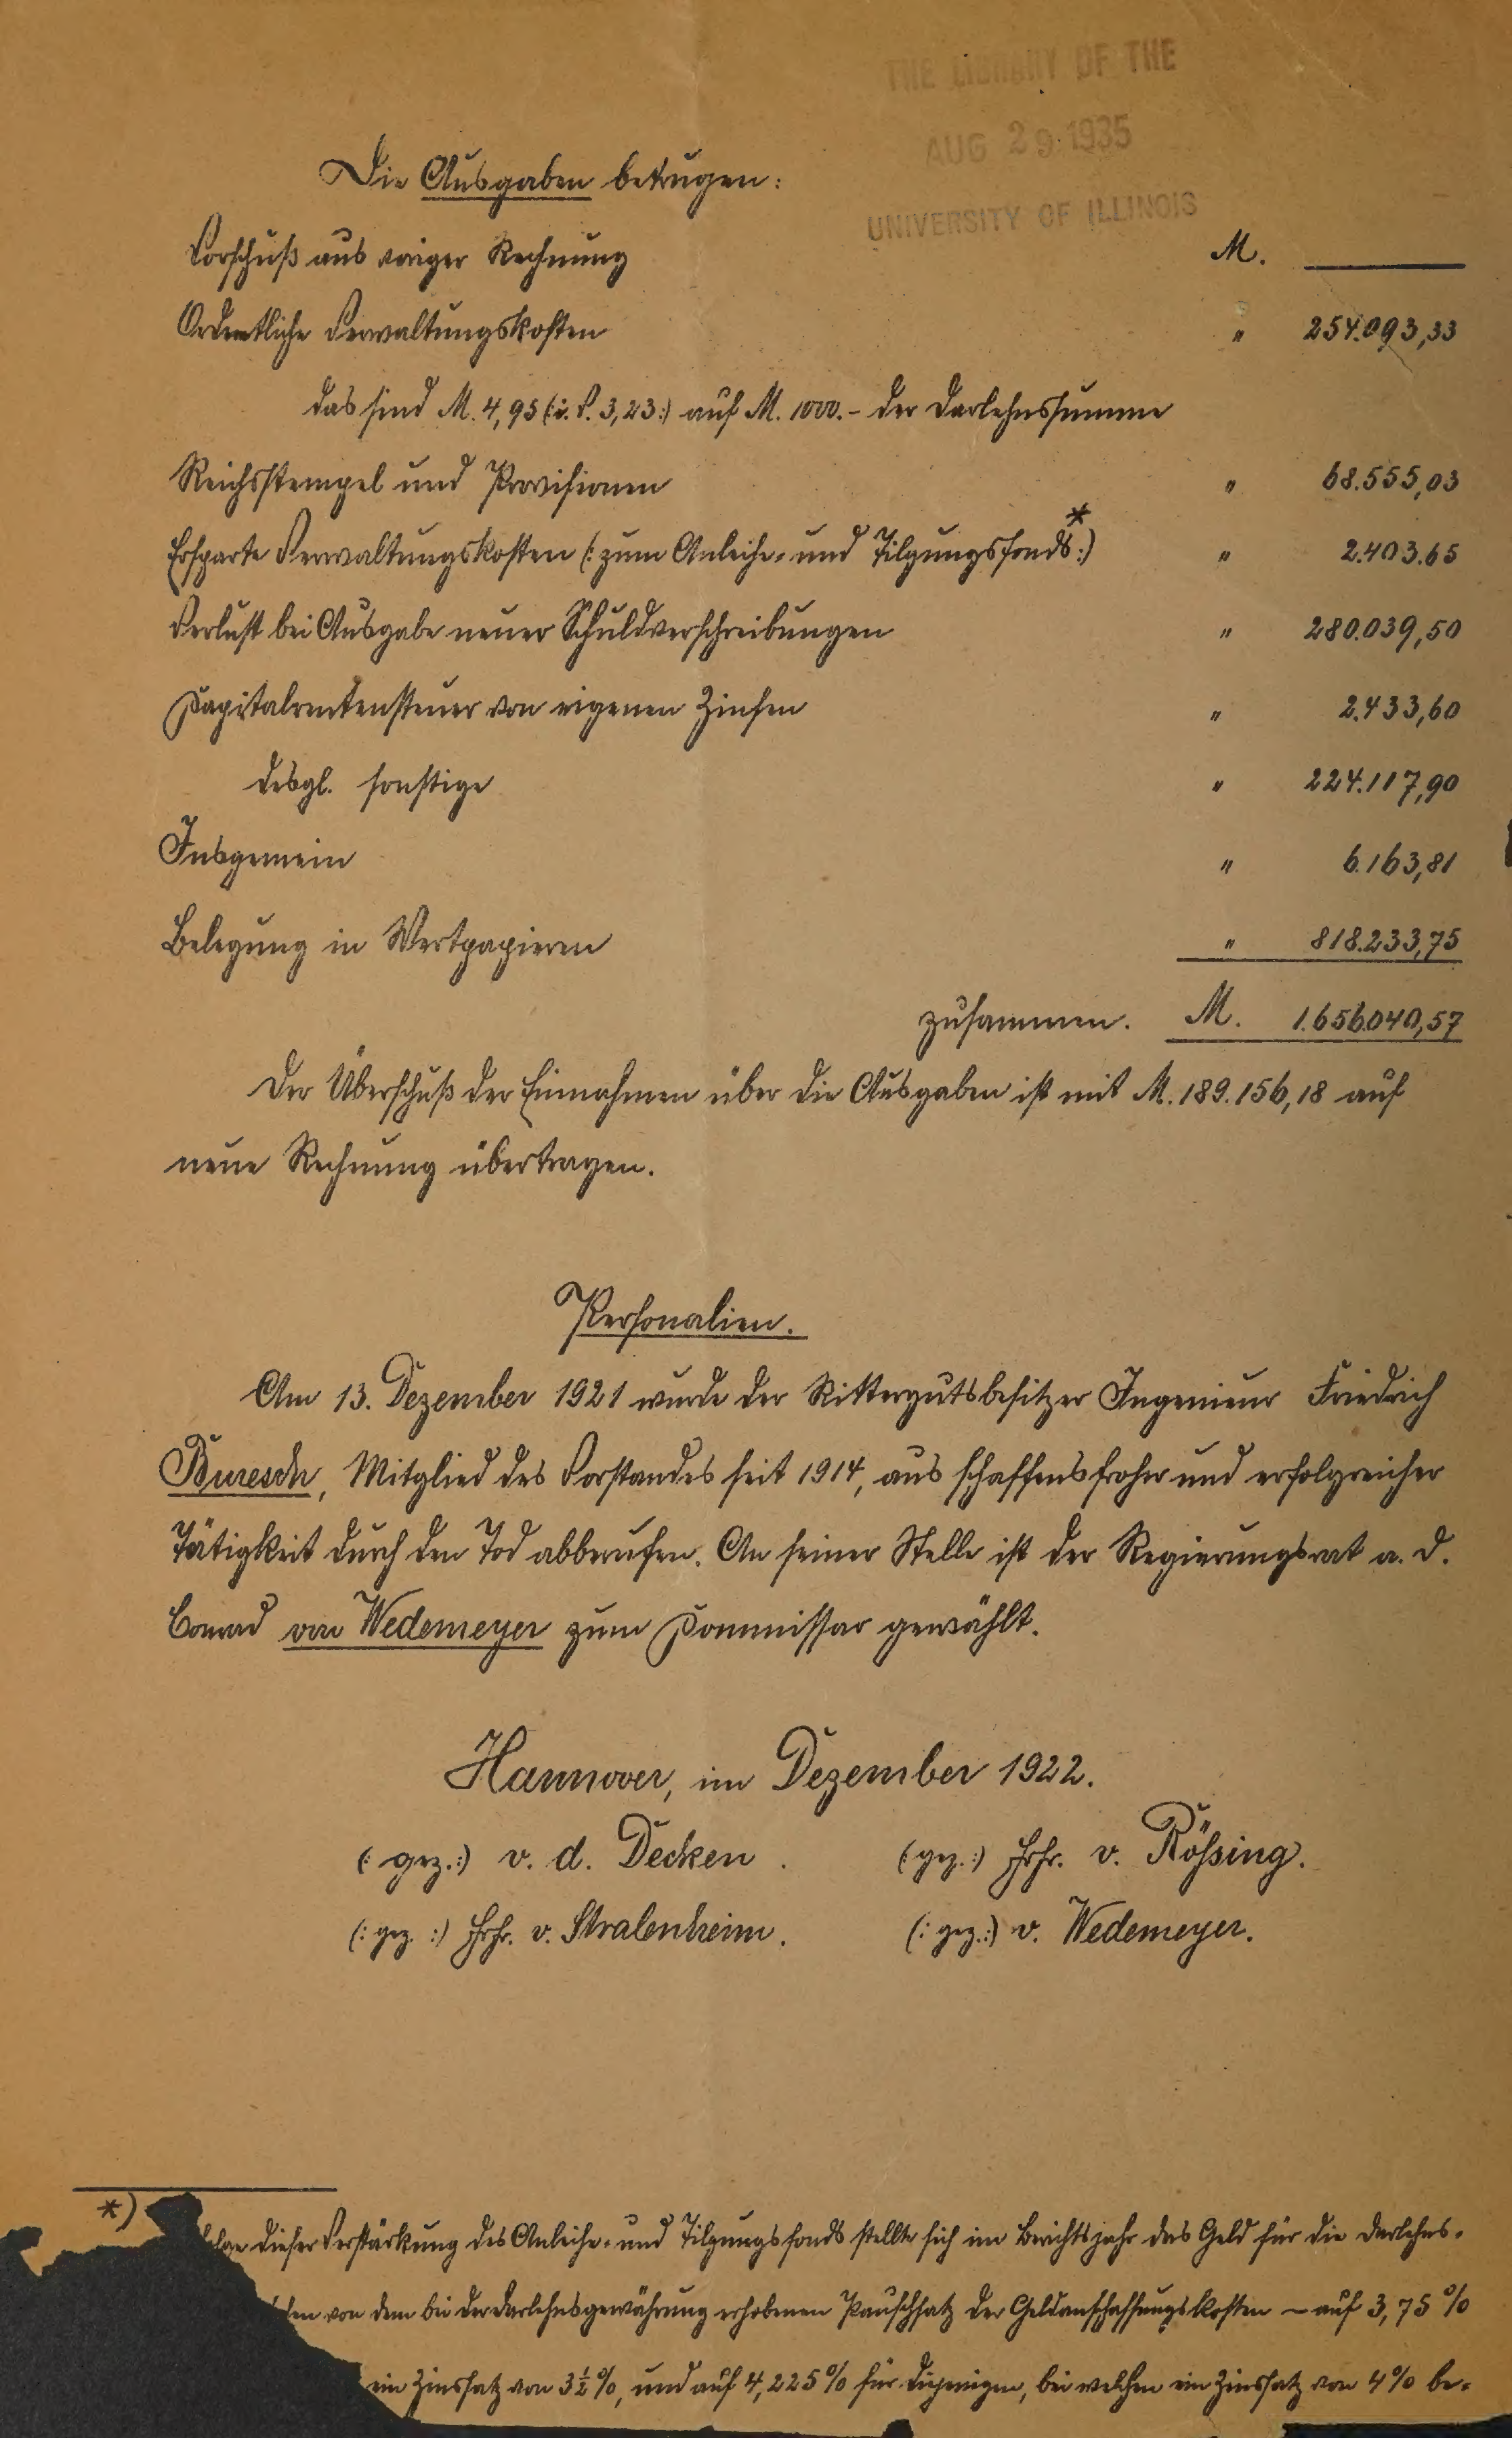 THE LIBRARY OF THE
AUG 29 1935
UNIVERSITY OF ILLINOIS
Die Ausgaben betrugen:
Vorschuß aus voriger Rechnung M. ———
Ordentliche Verwaltungskosten " 254.093,33
das sind M. 4,95 (:i. V. 3,23:) auf M. 1000.- der Darlehnssumme
Reichsstempel und Provisionen " 68.555,03
Ersparte Verwaltungskosten (: zum Anleihe- und Tilgungsfonds*:) " 2.403.65
Verlust bei Ausgabe neuer Schuldverschreibungen " 280.039,50
Kapitalrentensteuer von eigenen Zinsen " 2.433,60
desgl. sonstige " 224.117,90
Insgemein " 6.163,81
Belegung in Wertpapieren " 818.233,75
zusammen. M. 1.656.040,57
Der Überschuß der Einnahmen über die Ausgaben ist mit M. 189.156,18 auf
neue Rechnung übertragen.
Personalien.
Am 13. Dezember 1921 wurde der Rittergutsbesitzer Ingenieur Friedrich
Buresch, Mitglied des Vorstandes seit 1914, aus schaffensfroher und erfolgreicher
Tätigkeit durch den Tod abberufen. An seiner Stelle ist der Regierungsrat a. D.
Conrad von Wedemeyer zum Kommissar gewählt.
Hannover, im Dezember 1922.
(: gez.:) v. d. Decken. (: gez.:) Frhr. v. Rössing.
(: gez. :) Frhr. v. Stralenheim. (: gez.:) v. Wedemeyer.
*) dieser Verstärkung des Anleihe- und Tilgungsfonds stellte sich im Berichtsjahr das Geld für die Darlehns-
von dem bei der Darlehnsgewährung erhobenen Pauschsatz der Geldanschaffungskosten - auf 3,75 %
ein Zinssatz von 3½ %, und auf 4,225 % für diejenigen, bei welchen ein Zinssatz von 4 % be-